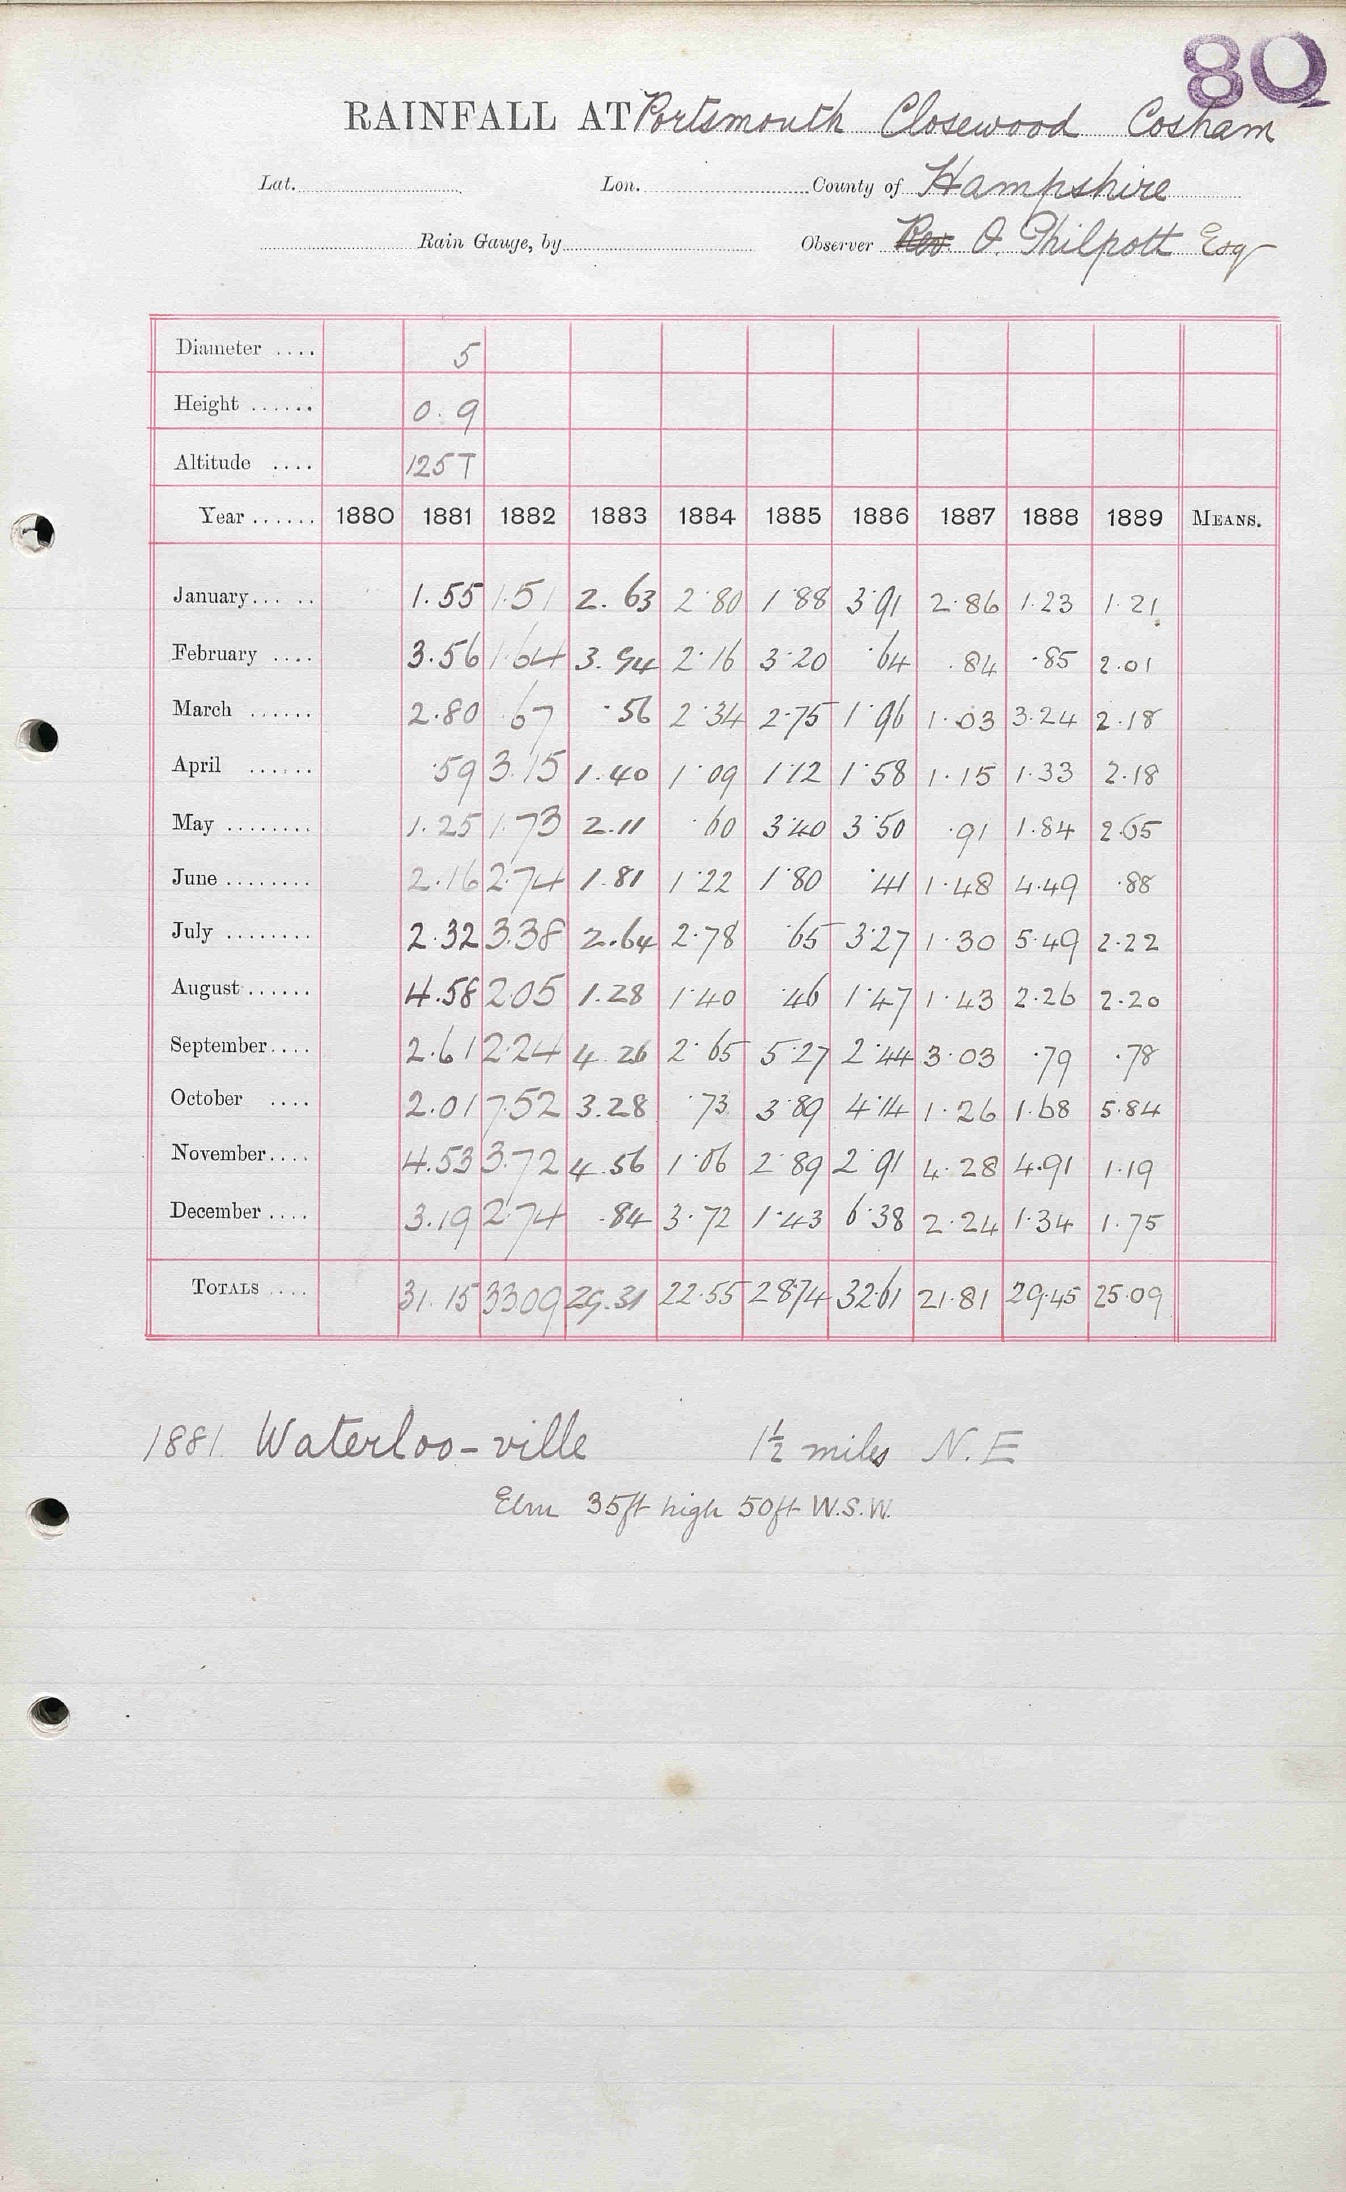 80
RAINFALL AT Portsmouth Closewood Cosham
Lat. Lon. County of Hampshire
Rain Gauge, by Observer Rev O. Philpott Esq
Diameter .... 5
Height ...... 0.9
Altitude .... 125T
Year ...... 1880 1881 1882 1883 1884 1885 1886 1887 1888 1889 MEANS.
January... .. 1.55 1.51 2.63 2.80 1.88 3.91 2.86 1.23 1.21
February .... 3.56 1.64 3.94 2.16 3.20 .64 .84 .85 2.01
March ...... 2.80 .67 .56 2.34 2.75 1.96 1.03 3.24 2.18
April ...... .59 3.15 1.40 1.09 1.12 1.58 1.15 1.33 2.18
May ........ 1.25 1.73 2.11 .60 3.40 3.50 .91 1.84 2.65
June ........ 2.16 2.74 1.81 1.22 1.80 .41 1.48 4.49 .88
July ........ 2.32 3.38 2.64 2.78 .65 3.27 1.30 5.49 2.22
August ...... 4.58 2.05 1.28 1.40 .46 1.47 1.43 2.26 2.20
September.... 2.61 2.24 4.26 2.65 5.27 2.44 3.03 .79 .78
October .... 2.01 7.52 3.28 .73 3.89 4.14 1.26 1.68 5.84
November.... 4.53 3.72 4.56 1.06 2.89 2.91 4.28 4.91 1.19
December .... 3.19 2.74 .84 3.72 1.43 6.38 2.24 1.34 1.75
TOTALS .... 31.15 33.09 29.31 22.55 28.74 32.61 21.81 29.45 25.09
1881. Waterloo-ville 1½ miles N.E
Elm 35ft high 50ft W.S.W.